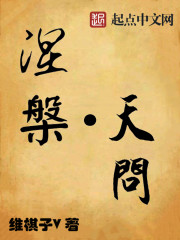 起 起点中文网
涅槃·天問
维祺子V 著